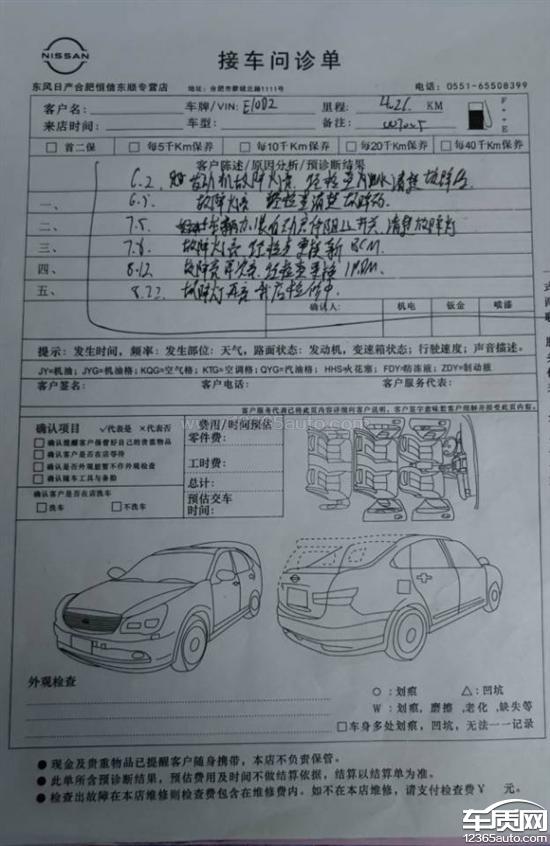 NISSAN
接车问诊单
东风日产合肥恒信东顺专营店 地址：合肥市蒙城北路1111号 电话：0551-65508399
客户名： 车牌/VIN： E10D2 里程： KM F
来店时间： 车型： 备注： E
□ 首二保 □ 每5千Km保养 □ 每10千Km保养 □ 每20千Km保养 □ 每40千Km保养
客户陈述/原因分析/预诊断结果
6.2. 发动机故障灯亮 经检查 清楚 故障码
一、 故障灯亮 经检查清楚故障码
二、 7.5. 开关, 清楚故障灯
三、 7.8. 故障灯亮 经检查更换新 BCM
四、 8.12. 故障灯再次亮 经检查更换
五、 8.22. 故障灯再亮 到店检修中.
确认人： 机电 钣金 喷漆
提示：发生时间，频率：发生部位：天气，路面状态：发动机，变速箱状态；行驶速度；声音描述。
JY=机油；JYG=机油格；KQG=空气格；KTG=空调格；QYG=汽油格； HHS=火花塞；FDY=防冻液；ZDY=制动液
客户签名： 客户电话： 客户服务代表：
客户服务代表已将此页内容详细向客户说明，客户签字意味着客户理解并接受此页内容。
www.12365auto.com
确认项目 √代表是 ×代表否 费用/时间预估
□ 确认提醒客户保管好自己的贵重物品 零件费：
□ 确认客户是否在店等待
□ 确认是否外观脏暂不作外观检查 工时费：
□ 确认随车工具与备胎
总计：
确认客户是否在店洗车 预估交车
□ 洗车 □ 不洗车 时间：
外观检查
○：划痕 △：凹坑
W：划痕，磨擦，老化，缺失等
□ 车身多处划痕，凹坑，无法一一记录
● 现金及贵重物品已提醒客户随身携带，本店不负责保管。
● 此单所含预诊断结果，预估费用及时间不做结算依据，结算以结算单为准。
● 检查出故障在本店维修则检查费包含在维修费内。如不在本店维修，请支付检查费￥ 元。
车质网
12365auto.com